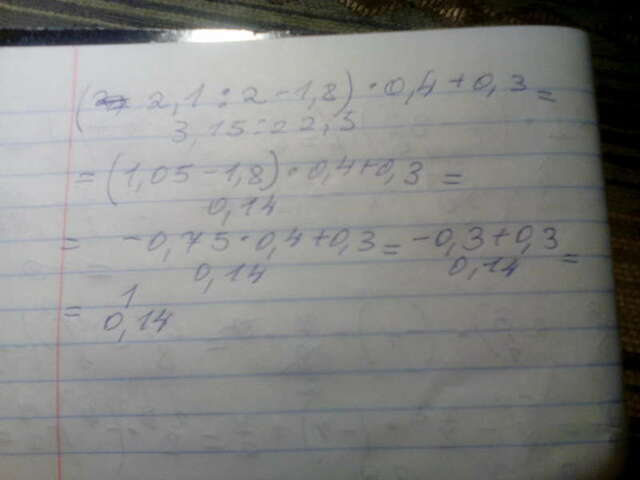 ( 2,1 : 2 - 1,8) · 0,4 + 0,3 =
3,15 : 22,5
= (1,05 - 1,8) · 0,4 + 0,3 =
0,14
= -0,75 · 0,4 + 0,3 = -0,3 + 0,3 =
0,14 0,14
= 1
0,14